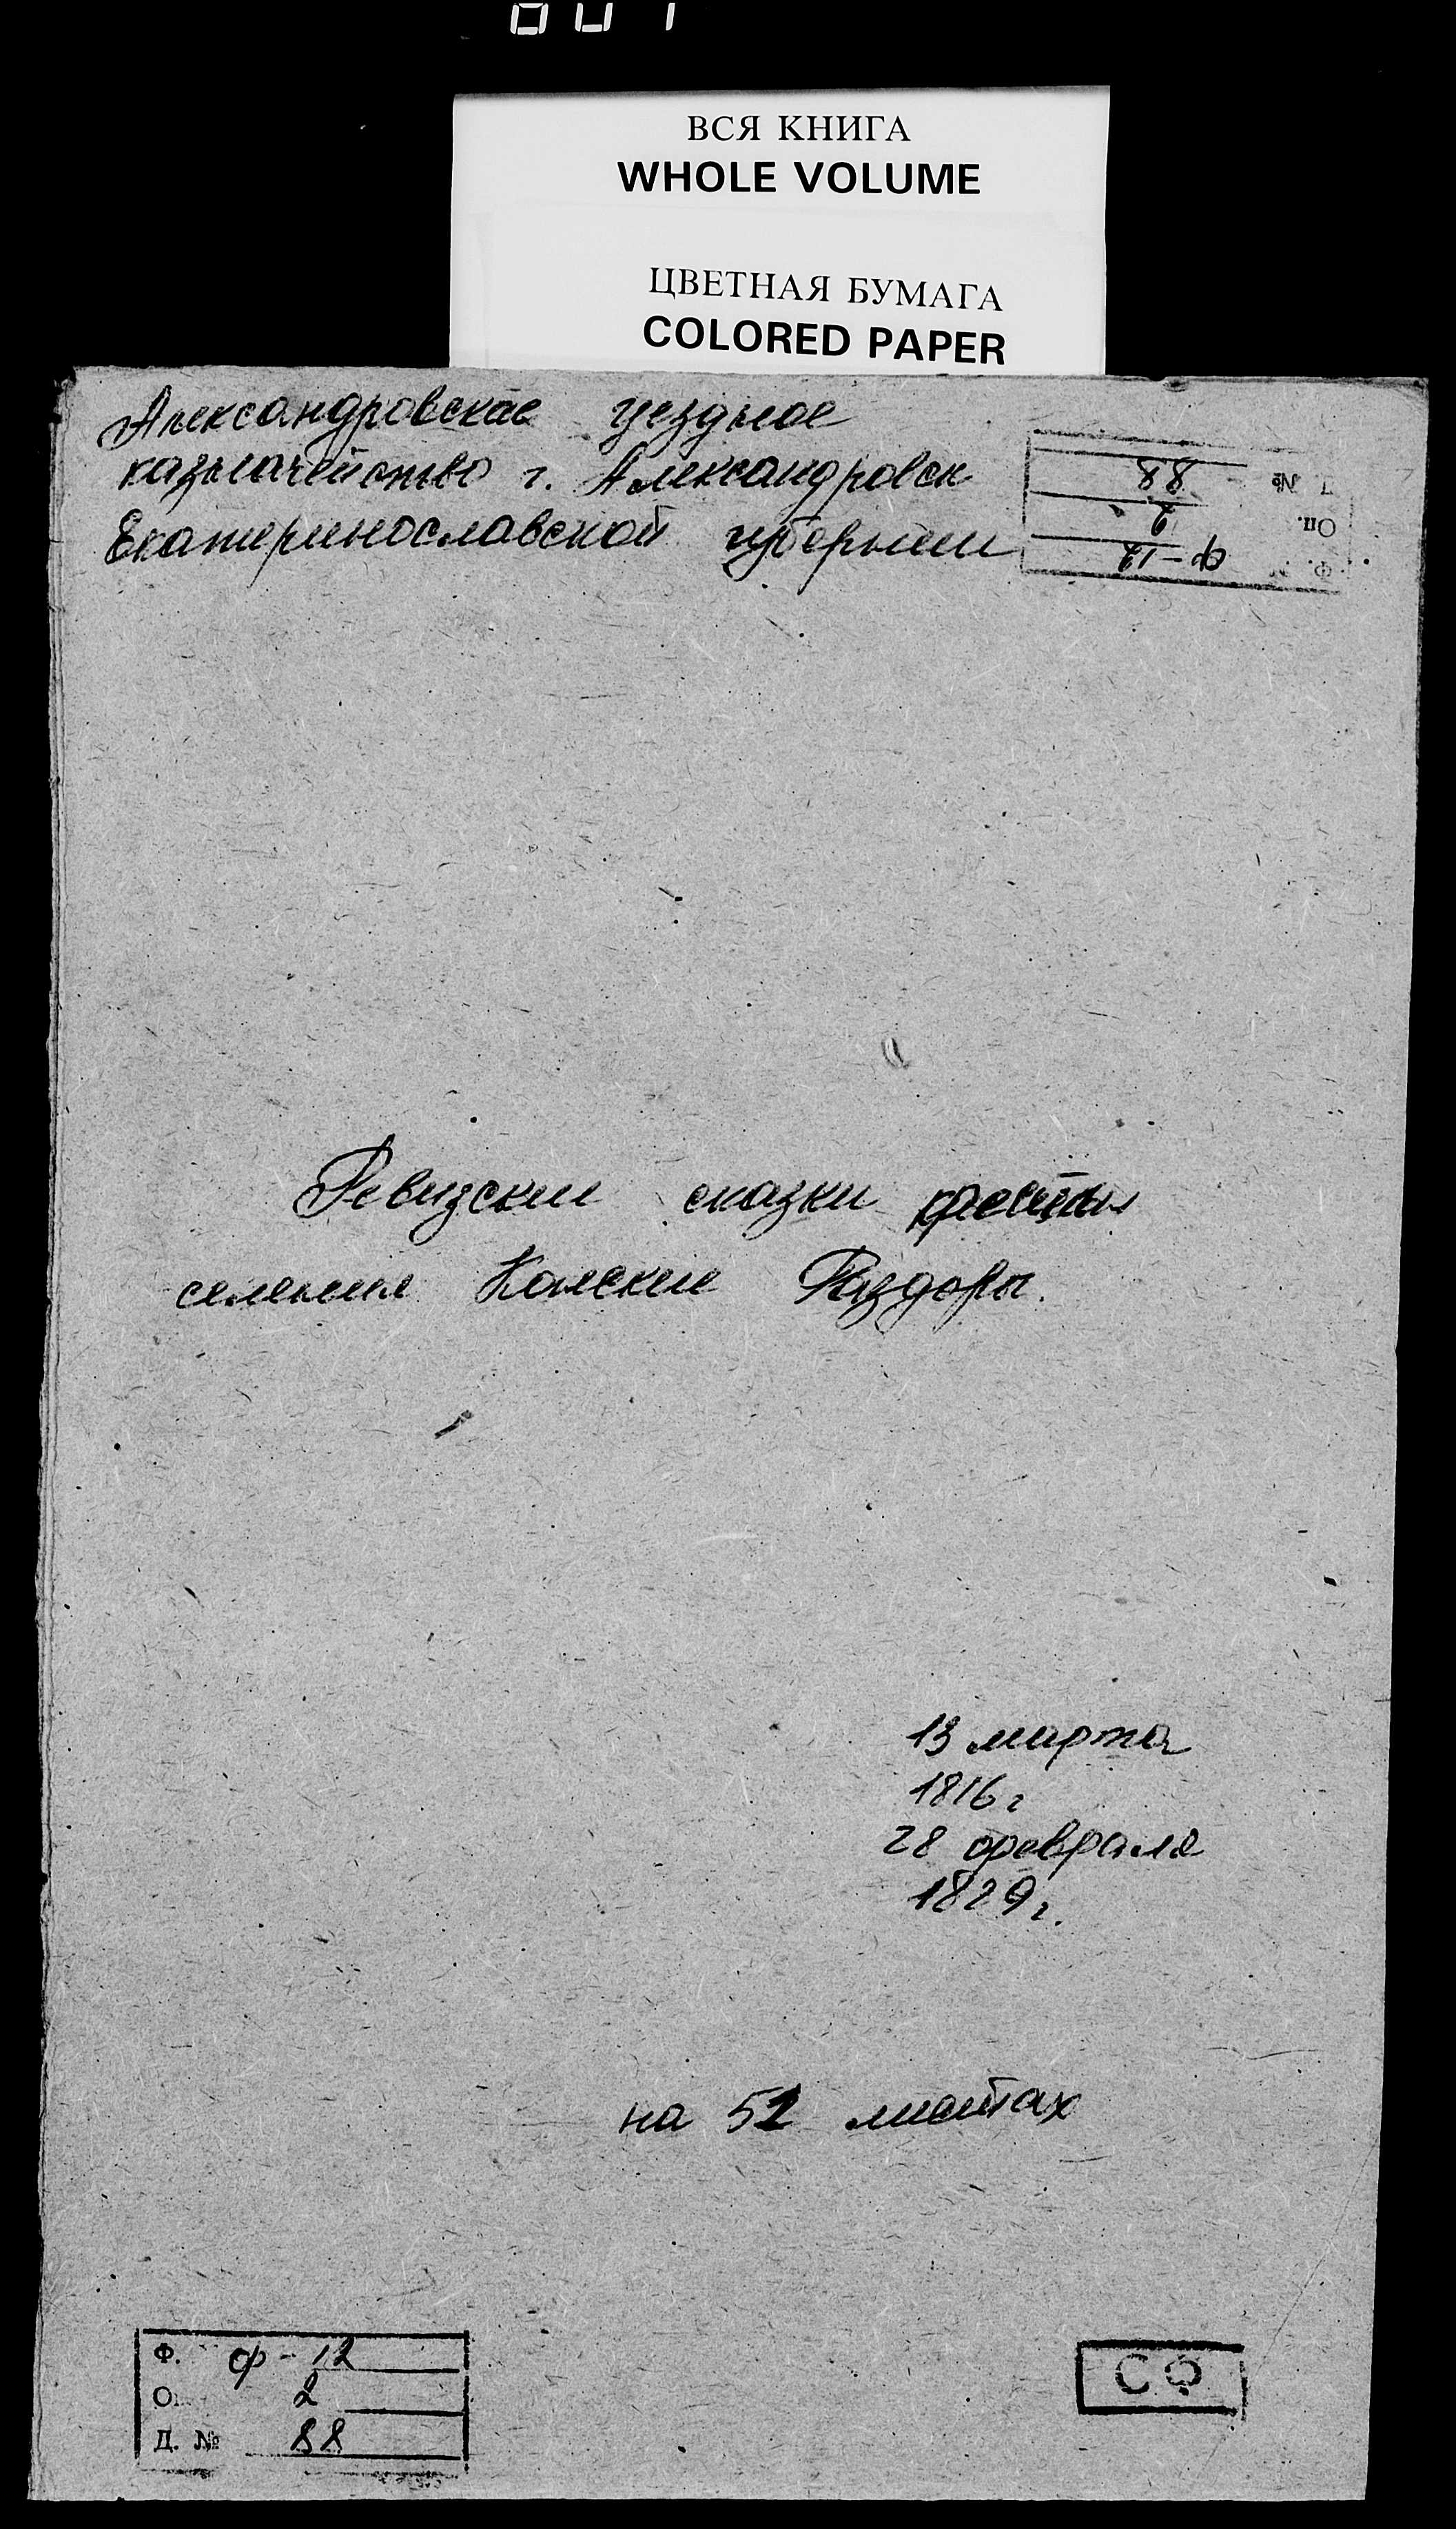 ВСЯ КНИГА
WHOLE VOLUME
ЦВЕТНАЯ БУМАГА
COLORED PAPER
Александровское уездное
казначейство г. Александровск
Екатеринославской губернии
Д. № 88
Оп. 2
Ф. ф-12
Ревизские сказки
селения Конские Раздоры.
13 марта
1816 г
28 февраля
1829 г.
на 52 листах
Ф. ф-12
О 2
Д. № 88
СФ